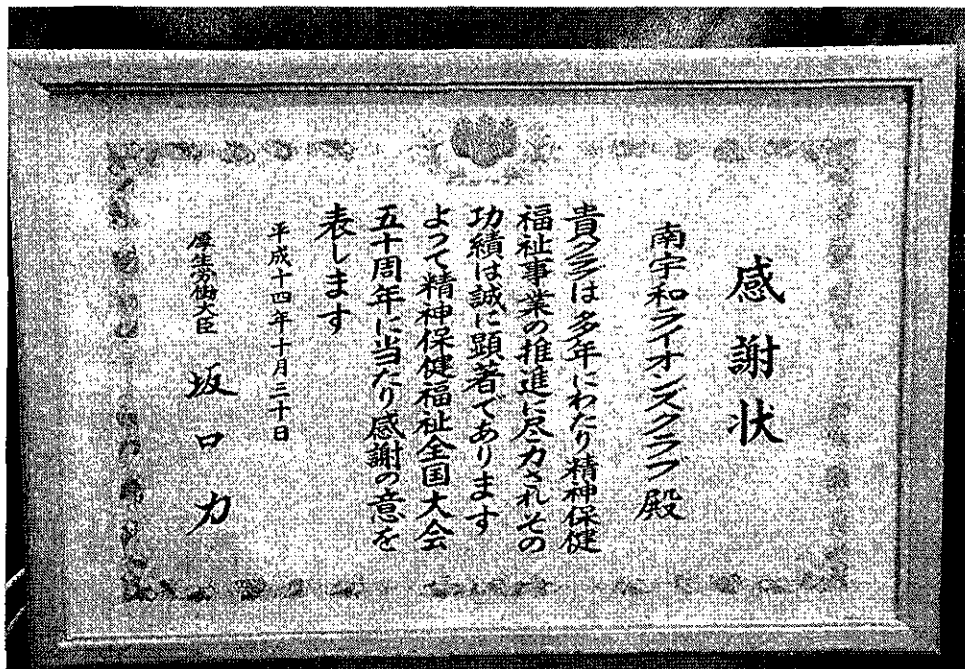 感謝状
南宇和ライオンズクラブ殿
貴クラブは多年にわたり精神保健
福祉事業の推進に尽力されその
功績は誠に顕著であります
よって精神保健福祉全国大会
五十周年に当たり感謝の意を
表します
平成十四年十月三十日
厚生労働大臣 坂口力